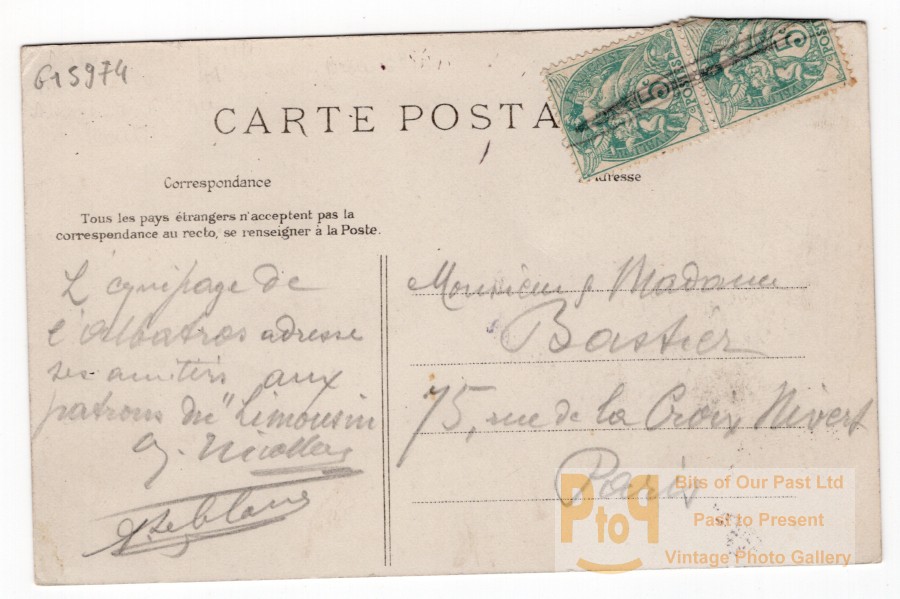 G15974
CARTE POSTA
Correspondance
Adresse
Tous les pays étrangers n'acceptent pas la
correspondance au recto, se renseigner à la Poste.
L'equipage de
l'Albatros adresse
ses amitiés aux
patrons du "Limousin
Monsieur & Madame
Bastier
75, rue de la Croix Nivert
Paris
G. Nicolleau
Leblanc
5
POSTES
5
POSTES
PtoP
Bits of Our Past Ltd
Past to Present
Vintage Photo Gallery